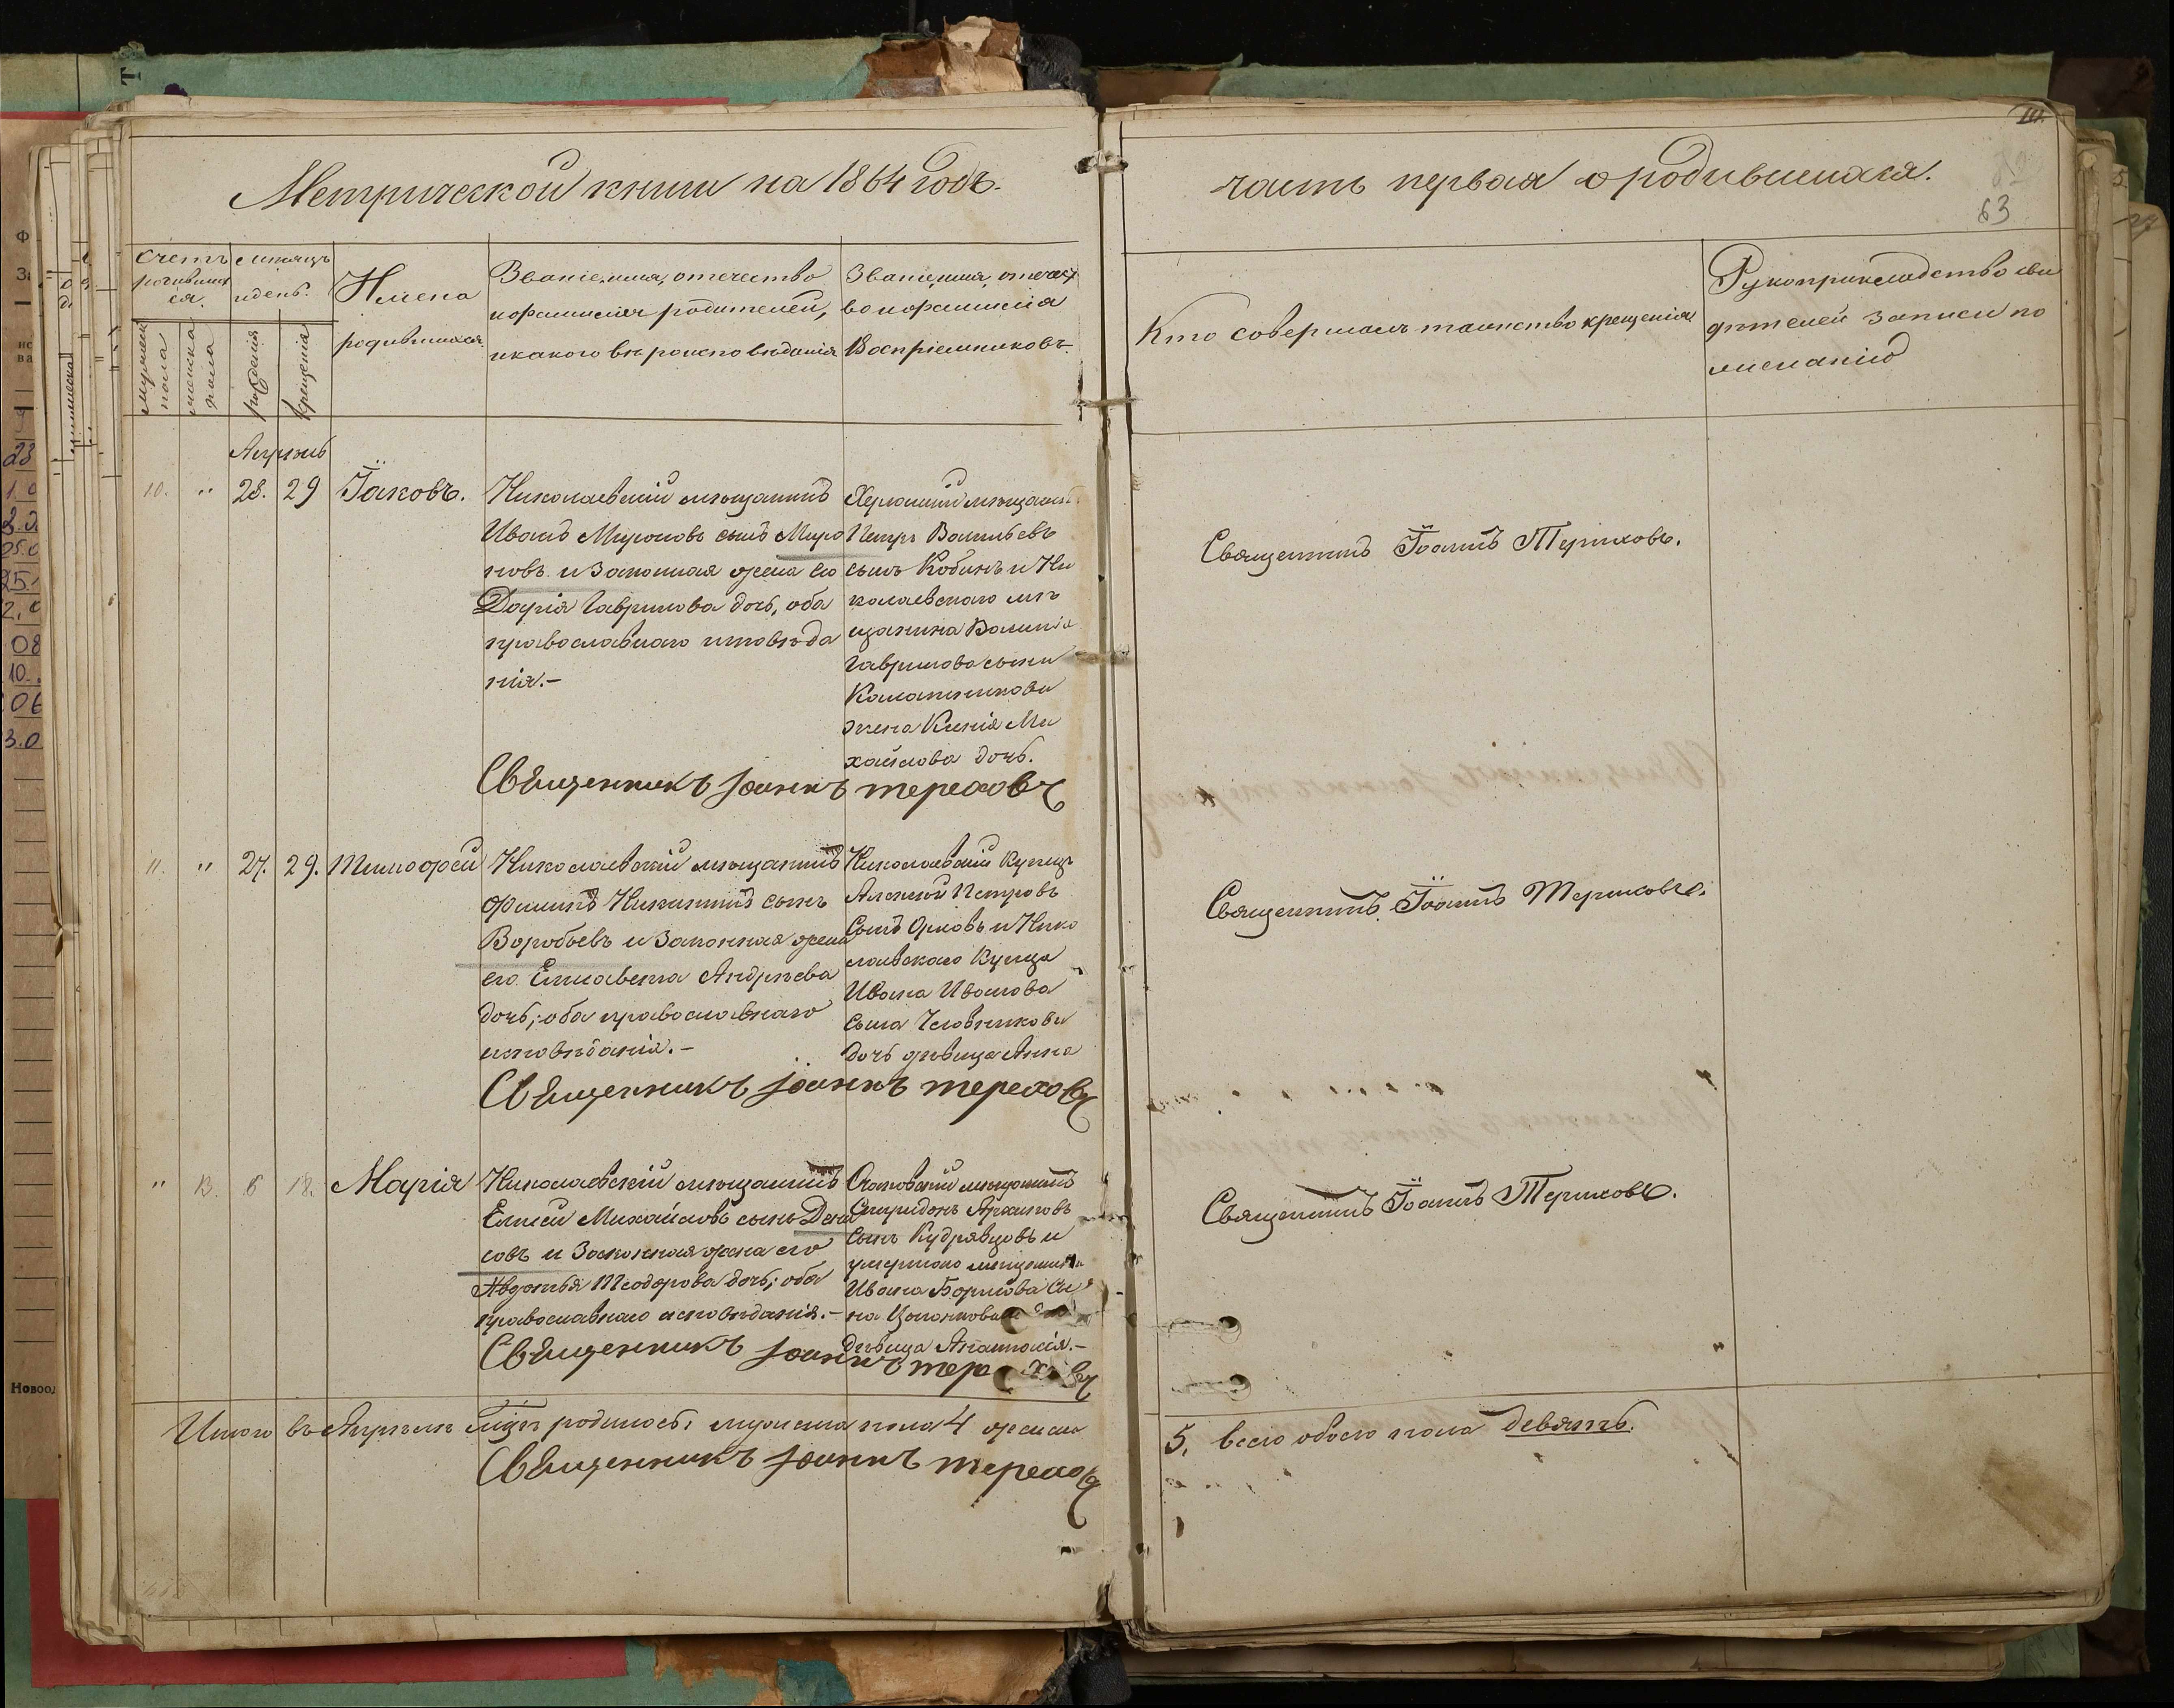 Метрической книги на 1864 годъ.
часть первая о родившихся.
63
Счетъ родившихся.
мужеска пола
женска пола
мѣсяцъ и день.
рожденія
крещенія
Имена
родившихся
Званіе, имя, отечество
и фамилія родителей,
и какого вѣроисповѣданія
Званіе, имя, отечест
во и фамилія
Воспріемниковъ.
Кто совершалъ таинство крещенія
Рукоприкладство сви
дѣтелей записи по
желанію
Апрѣль
10. " 28. 29 Іаковъ.
Николаевскій мѣщанинъ
Иванъ Мироновъ сынъ Миро
новъ и законная жена его
Дарія Гаврилова дочь, оба
православнаго исповѣда
нія.-
Херсонскій мѣщанинъ
Петръ Васильевъ
сынъ Кобинъ и Ни
колаевскаго мѣ
щанина Василія
Гаврилова сына
Калашникова
жена Ксенія Ми
хайлова дочь.
Священникъ Іоаннъ Тереховъ.
Священникъ Іоаннъ Тереховъ
11. " 27. 29. Тимофей
Николаевскій мѣщанинъ
Филипъ Никитинъ сынъ
Воробьевъ и Законная жена
его Елисавета Андреева
дочь; оба православнаго
исповѣданія.-
Николаевскій Купецъ
Алексѣй Петровъ
Сынъ Орловъ и Нико
лаевскаго Купца
Ивана Иванова
Сына Человникова
дочь дѣвица Анна
Священникъ Іоаннъ Тереховъ.
Священникъ Іоаннъ Тереховъ
" 13. 6 18. Марія
Николаевскій мѣщанинъ
Елисей Михайловъ сынъ Дени
совъ и Законная жена его
Авдотья Теодорова дочь; оба
православнаго исповѣданія.-
Очаковскій мѣщанинъ
Спиридонъ Архиповъ
Сынъ Кудрявцовъ и
умершаго мѣщанина
Ивана Борисова Сы
на
дѣвица Анастасія.-
Священникъ Іоаннъ Тереховъ.
Священникъ Іоаннъ Тереховъ
Итого въ Апрѣлѣ м҃цѣ родилось: мужеска пола 4 женска
5, всего обоего пола девять.
Священникъ Іоаннъ Тереховъ